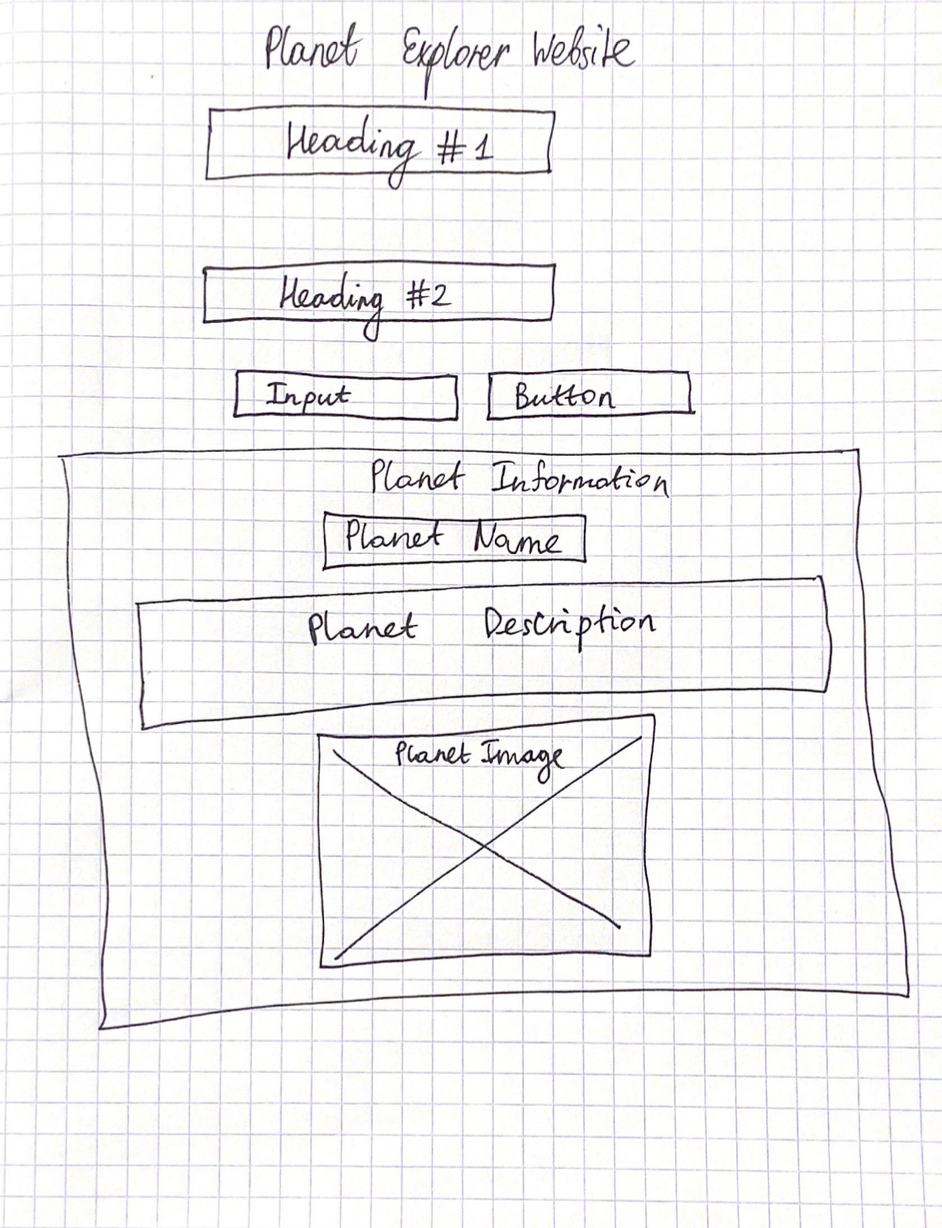 Planet Explorer Website
Heading #1
Heading #2
Input Button
Planet Information
Planet Name
Planet Description
Planet Image